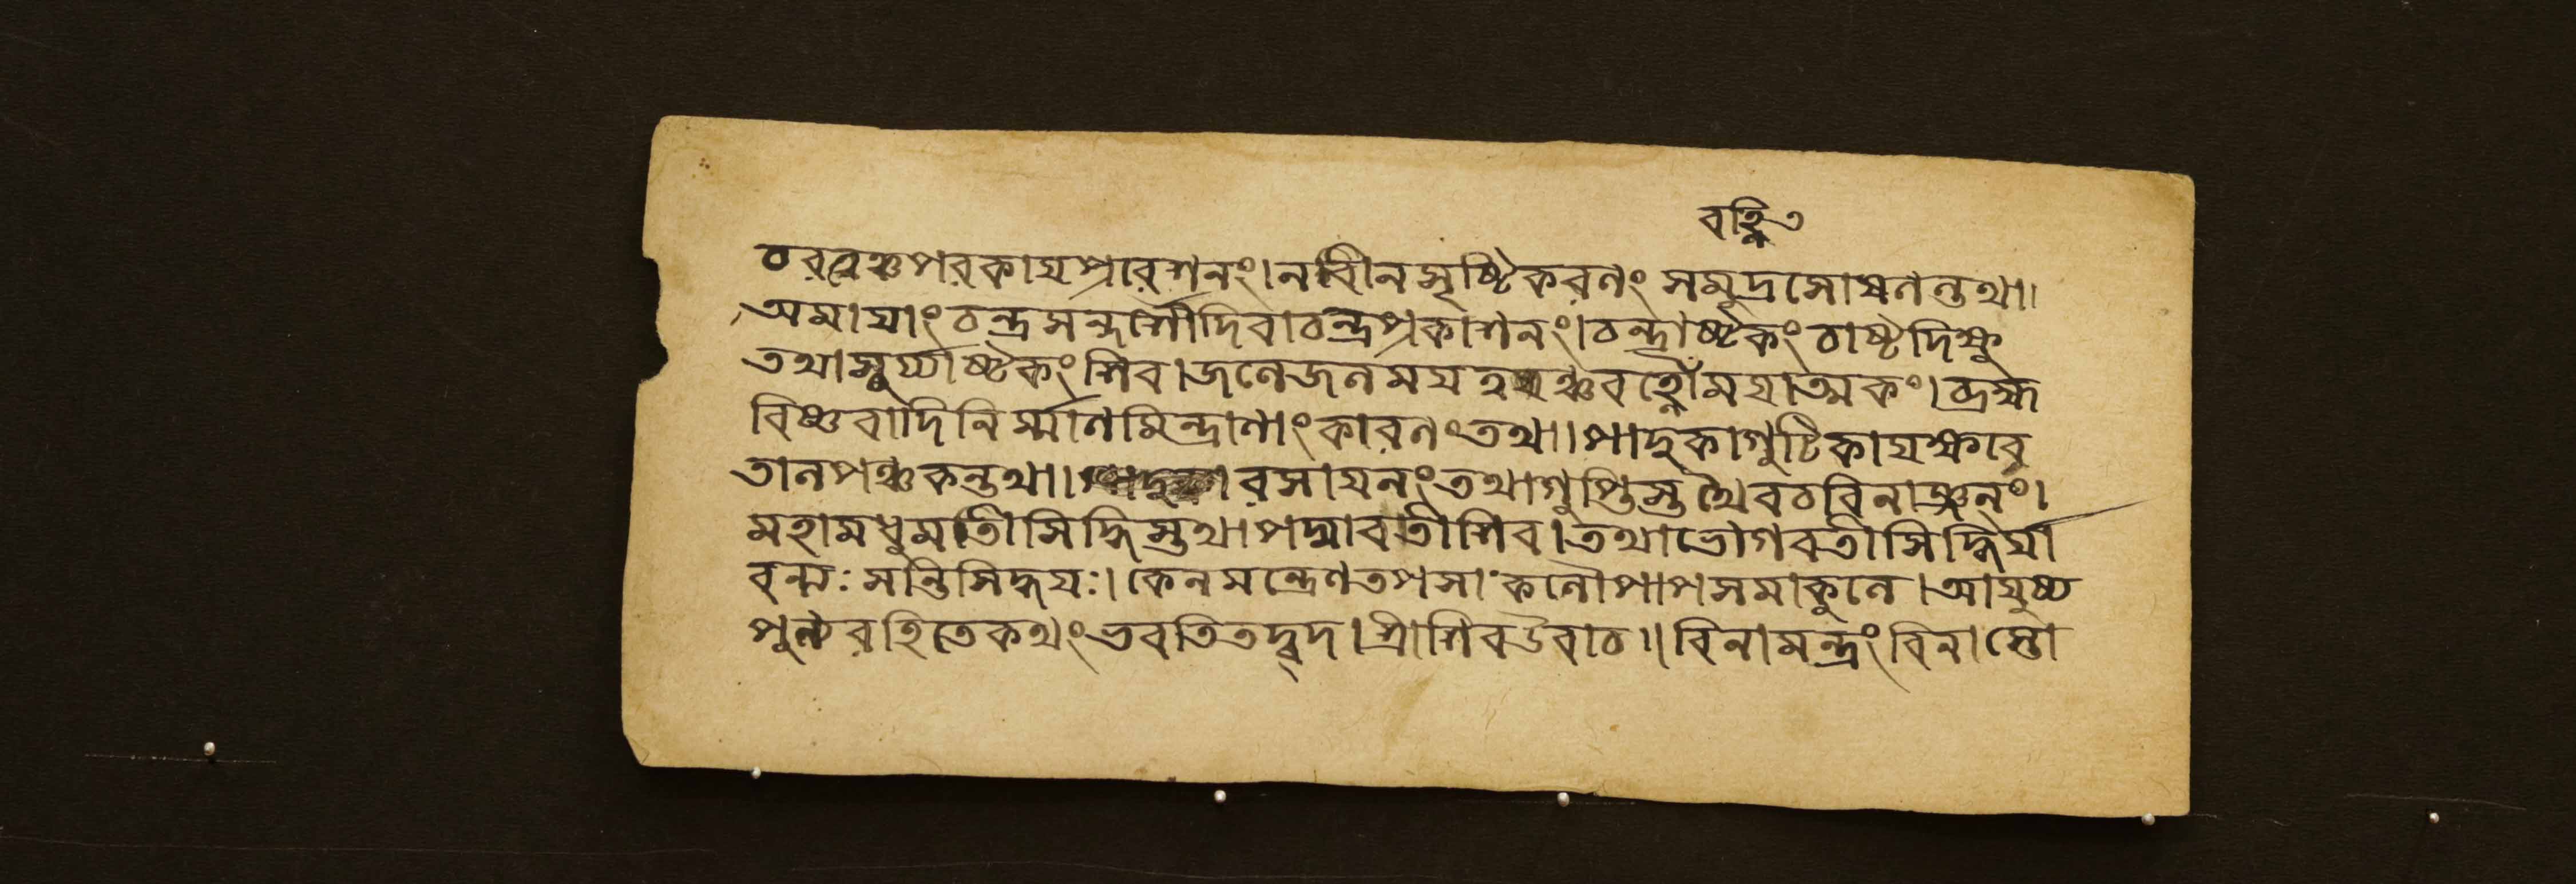 বহ্নি ৩
চরত্বঞ্চ পরকায়প্রবেশনং। নবীনসৃষ্টিকরণং সমুদ্রসোষণন্তথা॥
অমায়াং চন্দ্রসন্দর্শো দিবাচন্দ্রপ্রকাশনং। চন্দ্রাষ্টকং চাষ্টদিক্ষু
তথা সূর্য্যাষ্টকং শিব। জলে জলময়ত্বঞ্চ বহ্নৌ ময়াত্মকং। ব্রহ্ম
বিষ্ণ্বাদিনির্ম্মাণমিন্দ্রাণাং কারণং তথা॥ পাদুকাগুটিকাযক্ষবে
তালপঞ্চকন্তথা॥ রসায়নং তথা গুপ্তিস্তথৈব চ বিলাঞ্জনং।
মহামধুমতী সিদ্ধিস্তথা পদ্মাবতী শিব। তথা ভোগবতী সিদ্ধির্যা
বন্ত্যঃ সন্তি সিদ্ধয়ঃ। কেন মন্ত্রেণ তপসা কলৌ পাপসমাকুলে। আয়ুষ্য
পুণ্যরহিতে কথং ভবতি তদ্বদ। শ্রীশিব উবাচ॥ বিনা মন্ত্রং বিনা স্তো